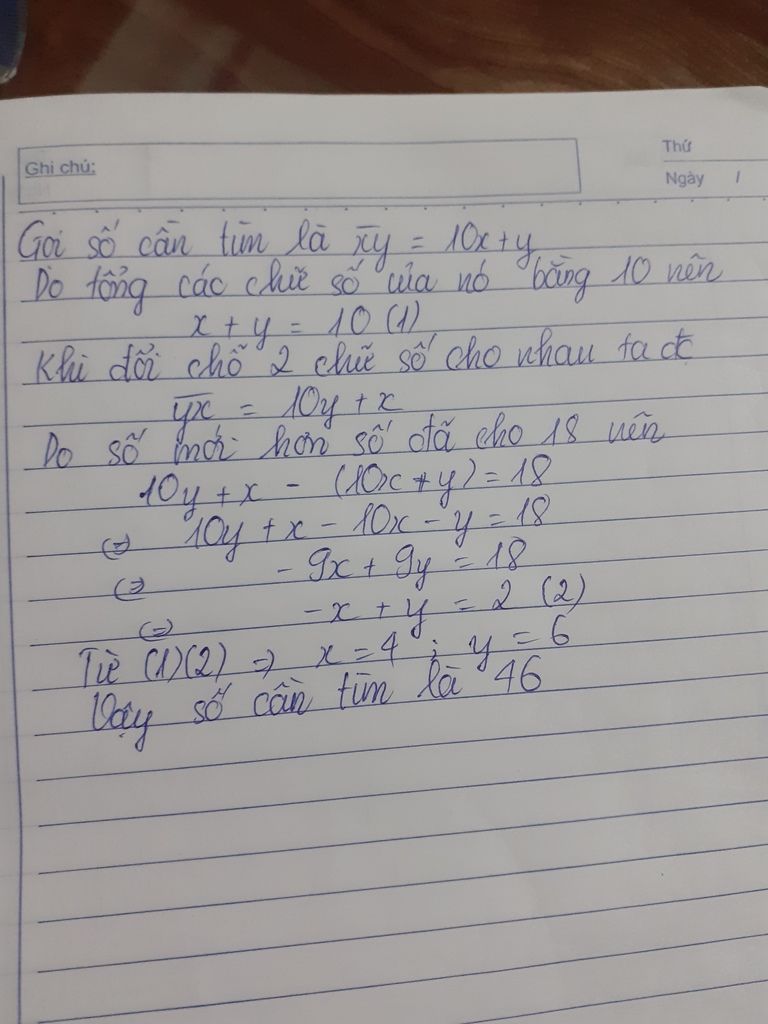 Ghi chú:
Thứ
Ngày /
Gọi số cần tìm là x̅y̅ = 10x+y
Do tổng các chữ số của nó bằng 10 nên
x + y = 10 (1)
Khi đổi chỗ 2 chữ số cho nhau ta đc
y̅x̅ = 10y + x
Do số mới hơn số đã cho 18 nên
10y + x - (10x + y) = 18
(=) 10y + x - 10x - y = 18
(=) - 9x + 9y = 18
(=) -x + y = 2 (2)
Từ (1)(2) => x = 4 ; y = 6
Vậy số cần tìm là 46